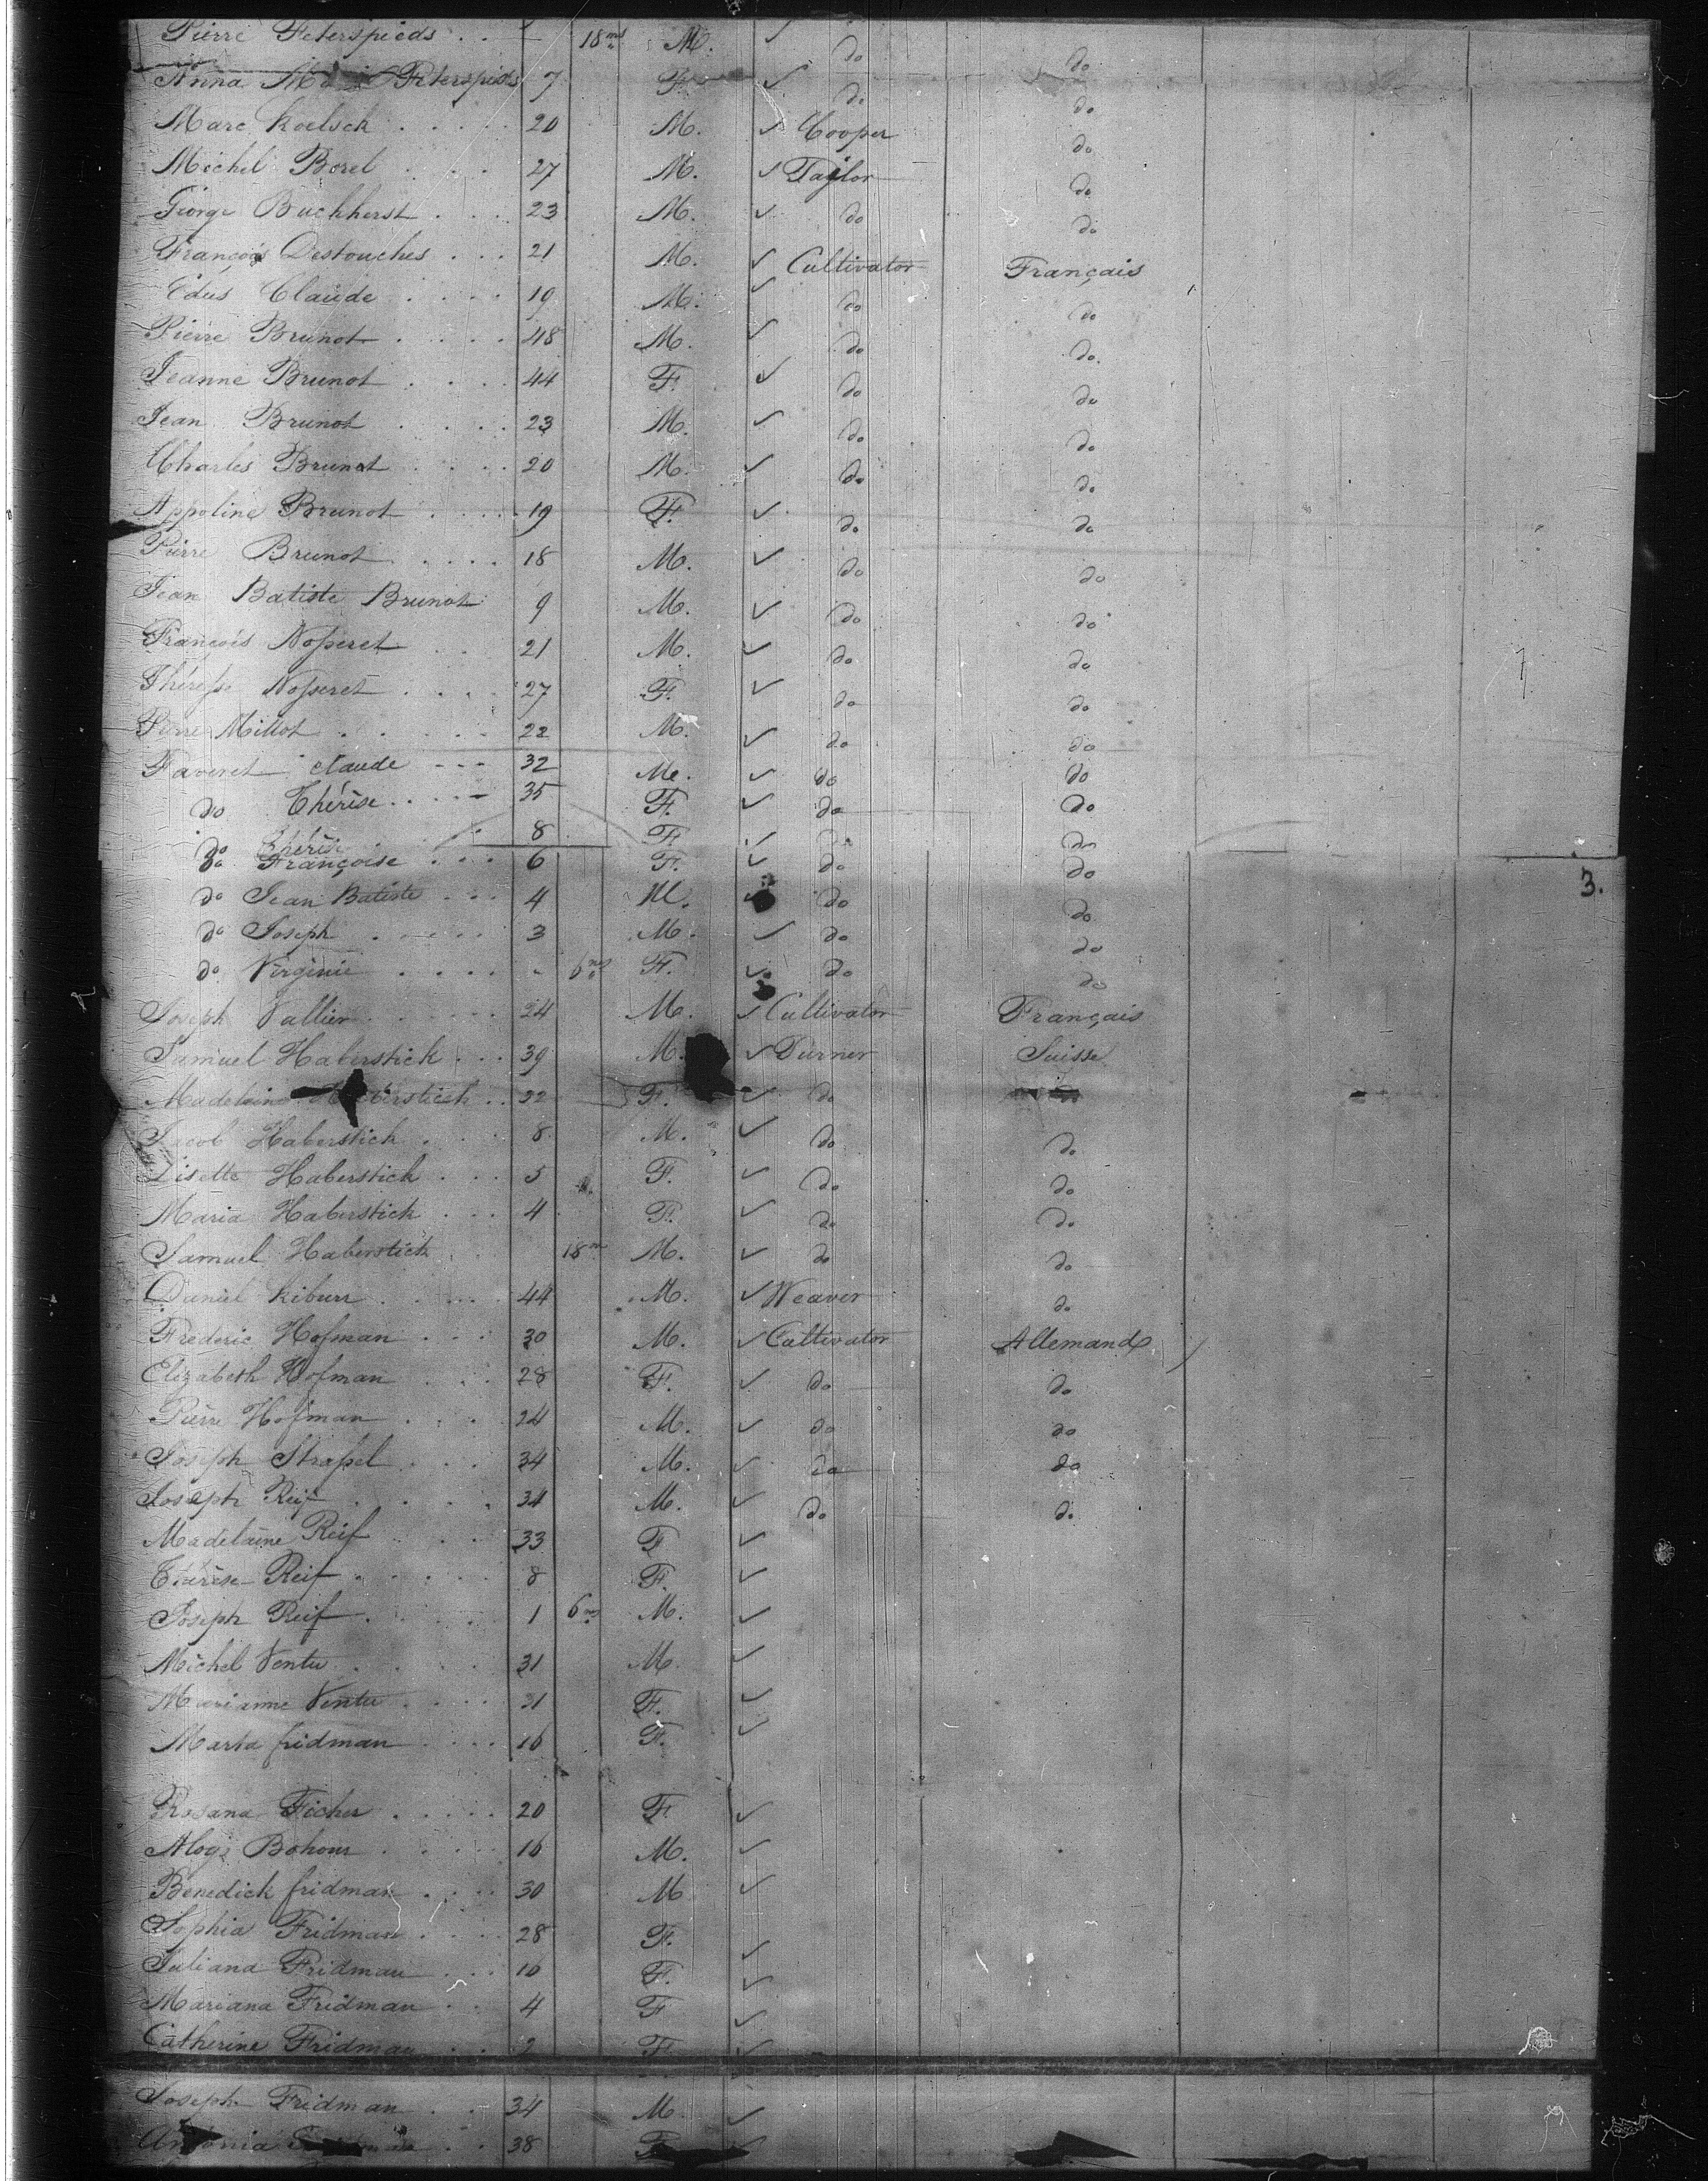 Pierre Peterspieds . . — 18ms M. ✓ do do
Anna Peterspieds 7 F. ✓ do do
Marc Koelsch . . . . . 20 M. ✓ Cooper do
Michel Borel . . . . 27 M. ✓ Taylor do
George Buchherst . . . 23 M. ✓ do do
François Destouches . . . 21 M. ✓ Cultivator Français
Claude . . . . 19 M. ✓ do do
Pierre Brunot . . . . . 48 M. ✓ do do.
Jeanne Brunot . . . . 44 F. ✓ do do
Jean Brunot . . . . . 23 M. ✓ do do
Charles Brunot . . . . 20 M. ✓ do do
Appoline Brunot . . . . 19 F. ✓ do do
Pierre Brunot . . . . . 18 M. ✓ do do
Jean Batiste Brunot 9 M. ✓ do do
François Nosseret . . 21 M. ✓ do do
Théresse Nosseret . . . . 27 F. ✓ do do
Pierre Millot . . . . . 22 M. ✓ do do
Faveret Claude - - - 32 M. ✓ do do
do Thérèse . . . . 35 F. ✓ do do
do Thérèse 8 F. ✓ do do
do Françoise . . . 6 F. ✓ do do
do Jean Batiste . . . 4 M. ✓ do do
do Joseph . . . . . 3 M. ✓ do do
do Virginie . . . . - 6ms F. ✓ do do
3.
Joseph Vallier . . . . . . 24 M. ✓ Cultivator Français
Samuel Haberstick . . . 39 M. ✓ Turner Suisse
Madelaine Haberstick . . 32 F. ✓ do
Jacob Haberstick . . . 8 M. ✓ do do
Lisette Haberstick . . . 5 F. ✓ do do
Maria Haberstick . . . 4 F. ✓ do do
Samuel Haberstick 18m M. ✓ do do
Daniel Kiburr . . . . . 44 M. ✓ Weaver do
Frederic Hofman . . . 30 M. ✓ Cultivator Allemand
Elizabeth Hofman . . . 28 F. ✓ do do
Pierre Hofman . . . . 24 M. ✓ do do
Joseph Strassel . . . 34 M. ✓ do do
Joseph Reif . . . . . 34 M. ✓ do do
Madelaine Reif . . . 33 F ✓
Thérèse Reif . . . . . 8 F. ✓
Joseph Reif . . . . . 1 6ms M. ✓
Michel Ventu . . . . . 31 M. ✓
Marianne Ventu . . . . 31 F. ✓
Marta fridman . . . . 16 F. ✓
Rosana Ficher . . . . . 20 F. ✓
Bohour . . . . . 16 M. ✓
Benedick fridman . . . . 30 M ✓
Sophia Fridman . . . . 28 F. ✓
Juliana Fridman . . . 10 F. ✓
Mariana Fridman . . 4 F ✓
Catherine Fridman . . 2 F. ✓
Joseph Fridman . . 34 M. ✓
Antonia . . 38 F. ✓